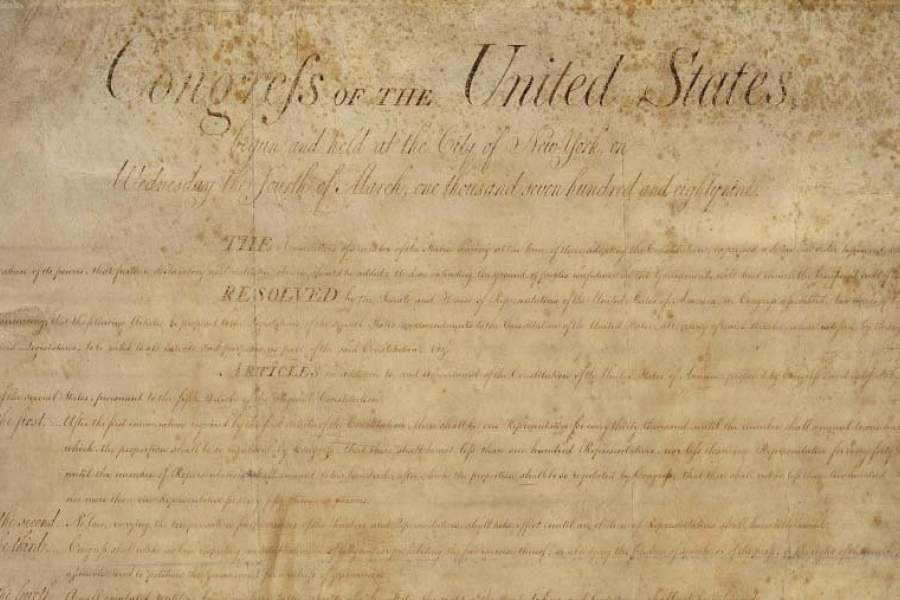 Congreſs OF THE United States,
begun and held at the City of New York, on
Wednesday the fourth of March, one thousand seven hundred and eighty nine.
THE of the States having at the time of their adopting the Constitution, expressed a desire in order to prevent
abuse of its powers, that further declaratory and restrictive clauses should be added: And as extending the ground of public confidence in the Government, will best ensure the
RESOLVED by the Senate and House of Representatives of the United States of America, in Congreſs aſsembled, two thirds of
concurring, that the following Articles be proposed to the Legislatures of the several States, as amendments to the Constitution of the United States, all, or any of which Articles, when ratified by
Legislatures, to be valid to all intents and purposes, as part of the said Constitution; viz.
ARTICLES in addition to, and amendment of the Constitution of the United States of America, proposed by Congreſs, and
of the several States, pursuant to the fifth Article of the original Constitution.
he first. After the first enumeration required by the first Article of the Constitution, there shall be one Representative for every thirty thousand, until the number shall amount to one
which, the proportion shall be so regulated by Congreſs, that there shall be not leſs than one hundred Representatives, nor leſs than one Representative for every forty
until the number of Representatives shall amount to two hundred, after which the proportion shall be so regulated by Congreſs, that there shall not be leſs than two hundred
nor more than one Representative for every fifty thousand persons.
the second. No law, varying the compensation for the services of the Senators and Representatives, shall take effect, until an election of Representatives shall have intervened.
he third. Congreſs shall make no law respecting an establishment of religion, or prohibiting the free exercise thereof; or abridging the freedom of speech, or of the preſs; or the right of the
aſsemble, and to petition the Government for a redreſs of grievances.